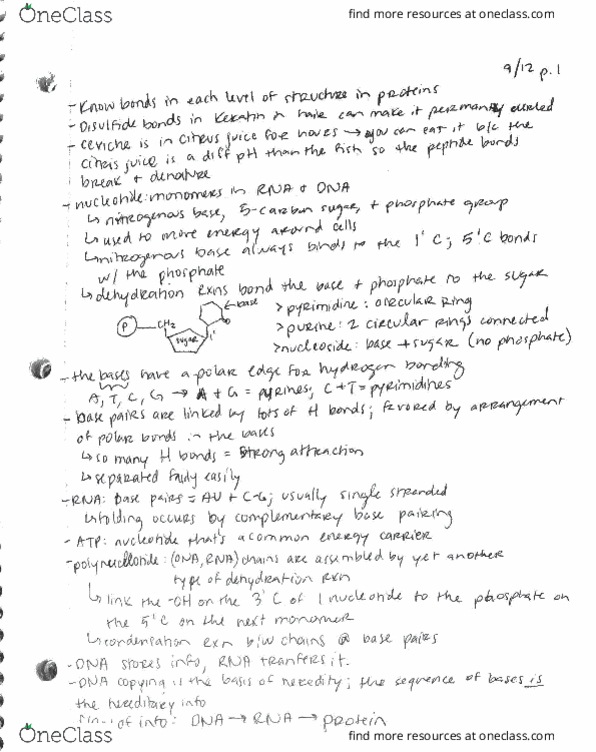 OneClass
find more resources at oneclass.com
9/12 p.1
- Know bonds in each level of structure in proteins
- Disulfide bonds in keratin in hair can make it permanently curled
- ceviche is in citrus juice for hours → you can eat it b/c the
citrus juice is a diff pH than the fish so the peptide bonds
break + denature
- nucleotide: monomers in RNA + DNA
↳ nitrogenous base, 5-carbon sugar, + phosphate group
↳ used to move energy around cells
↳ nitrogenous base always binds to the 1' C; 5' C bonds
w/ the phosphate
↳ dehydration rxns bond the base + phosphate to the sugar
P CH2 sugar 1' ← base
> pyrimidine: circular ring
> purine: 2 circular rings connected
> nucleoside: base + sugar (no phosphate)
- the bases have a polar edge for hydrogen bonding
A, T, C, G → A + G = pyrines; C + T = pyrimidines
- base pairs are linked by lots of H bonds; favored by arrangement
of polar bonds in the bases
↳ so many H bonds = strong attraction
↳ separated fairly easily
- RNA: base pairs = AU + C-G; usually single stranded
↳ folding occurs by complementary base pairing
- ATP: nucleotide that's a common energy carrier
- polynucleotide: (DNA, RNA) chains are assembled by yet another
type of dehydration rxn
↳ link the -OH on the 3' C of 1 nucleotide to the phosphate on
the 5' C on the next monomer
↳ condensation rxn b/w chains @ base pairs
- DNA stores info, RNA tranfers it.
- DNA copying is the basis of heredity; the sequence of bases is
the hereditary info
of info: DNA → RNA → protein
OneClass
find more resources at oneclass.com